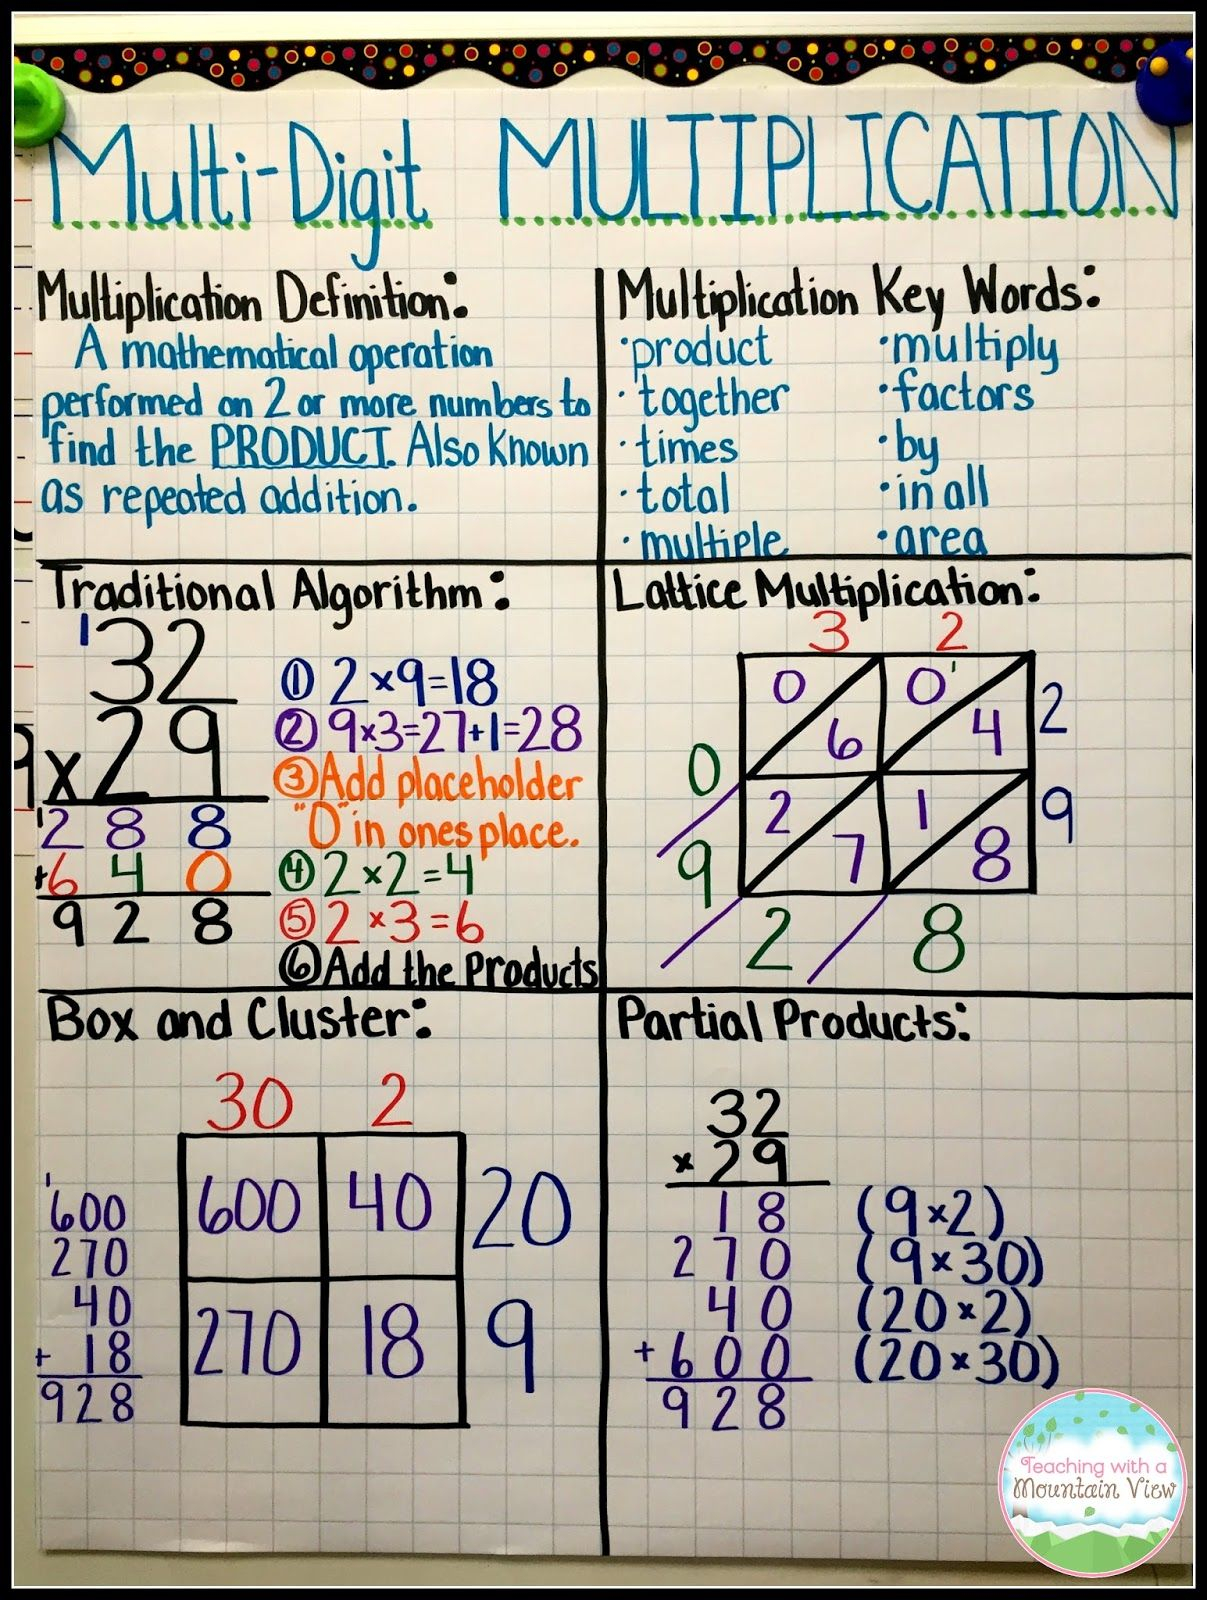 Multi-Digit MULTIPLICATION
Multiplication Definition:
A mathematical operation
performed on 2 or more numbers to
find the PRODUCT. Also known
as repeated addition.
Multiplication Key Words:
·product ·multiply
·together ·factors
·times ·by
·total ·in all
·multiple ·area
Traditional Algorithm:
1
32
x29
1
288
+640
928
① 2×9=18
② 9×3=27+1=28
③ Add placeholder
"0" in ones place.
④ 2×2=4
⑤ 2×3=6
⑥ Add the Products
Lattice Multiplication:
3 2
0 0 1
6 4 2
0
2 1 9
7 8
9
2 8
Box and Cluster:
30 2
600 40 20
270 18 9
1
600
270
40
+ 18
928
Partial Products:
32
×29
18 (9×2)
270 (9×30)
40 (20×2)
+600 (20×30)
928
Teaching with a
Mountain View